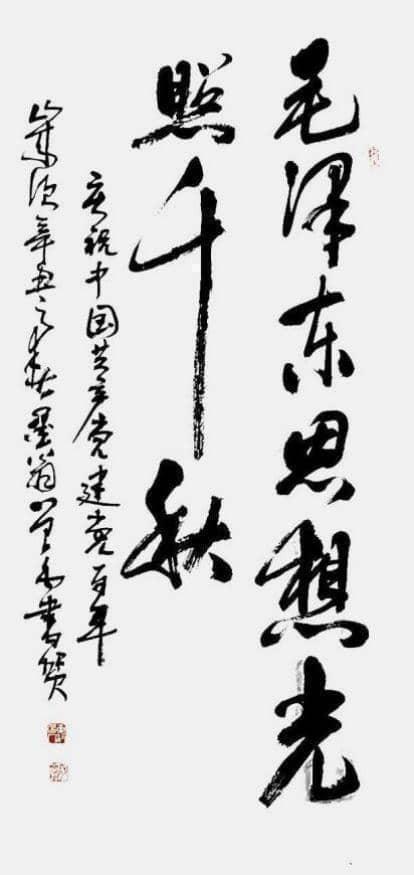 毛泽东思想光
照千秋
庆祝中国共产党建党百年
歲次辛丑之秋墨翁书贺